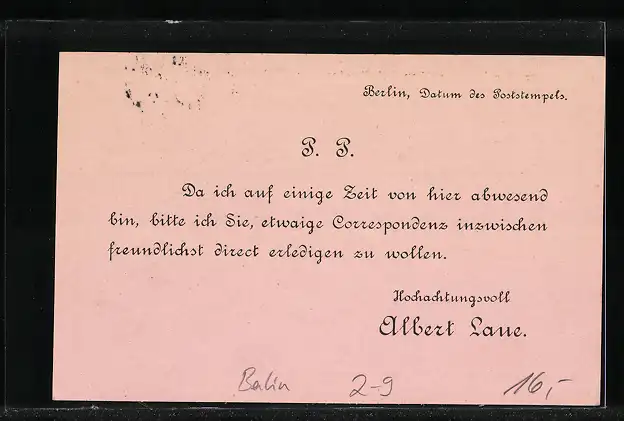 Berlin, Datum des Poststempels.
P. P.
Da ich auf einige Zeit von hier abwesend
bin, bitte ich Sie, etwaige Correspondenz inzwischen
freundlichst direct erledigen zu wollen.
Hochachtungsvoll
Albert Laue.
Berlin 2-9 16,-